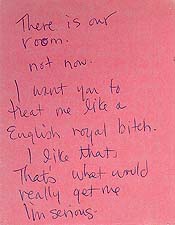 There is our
room.
not now.
I want you to
treat me like a
English royal bitch.
I like that.
That's what would
really get me
I'm serious.